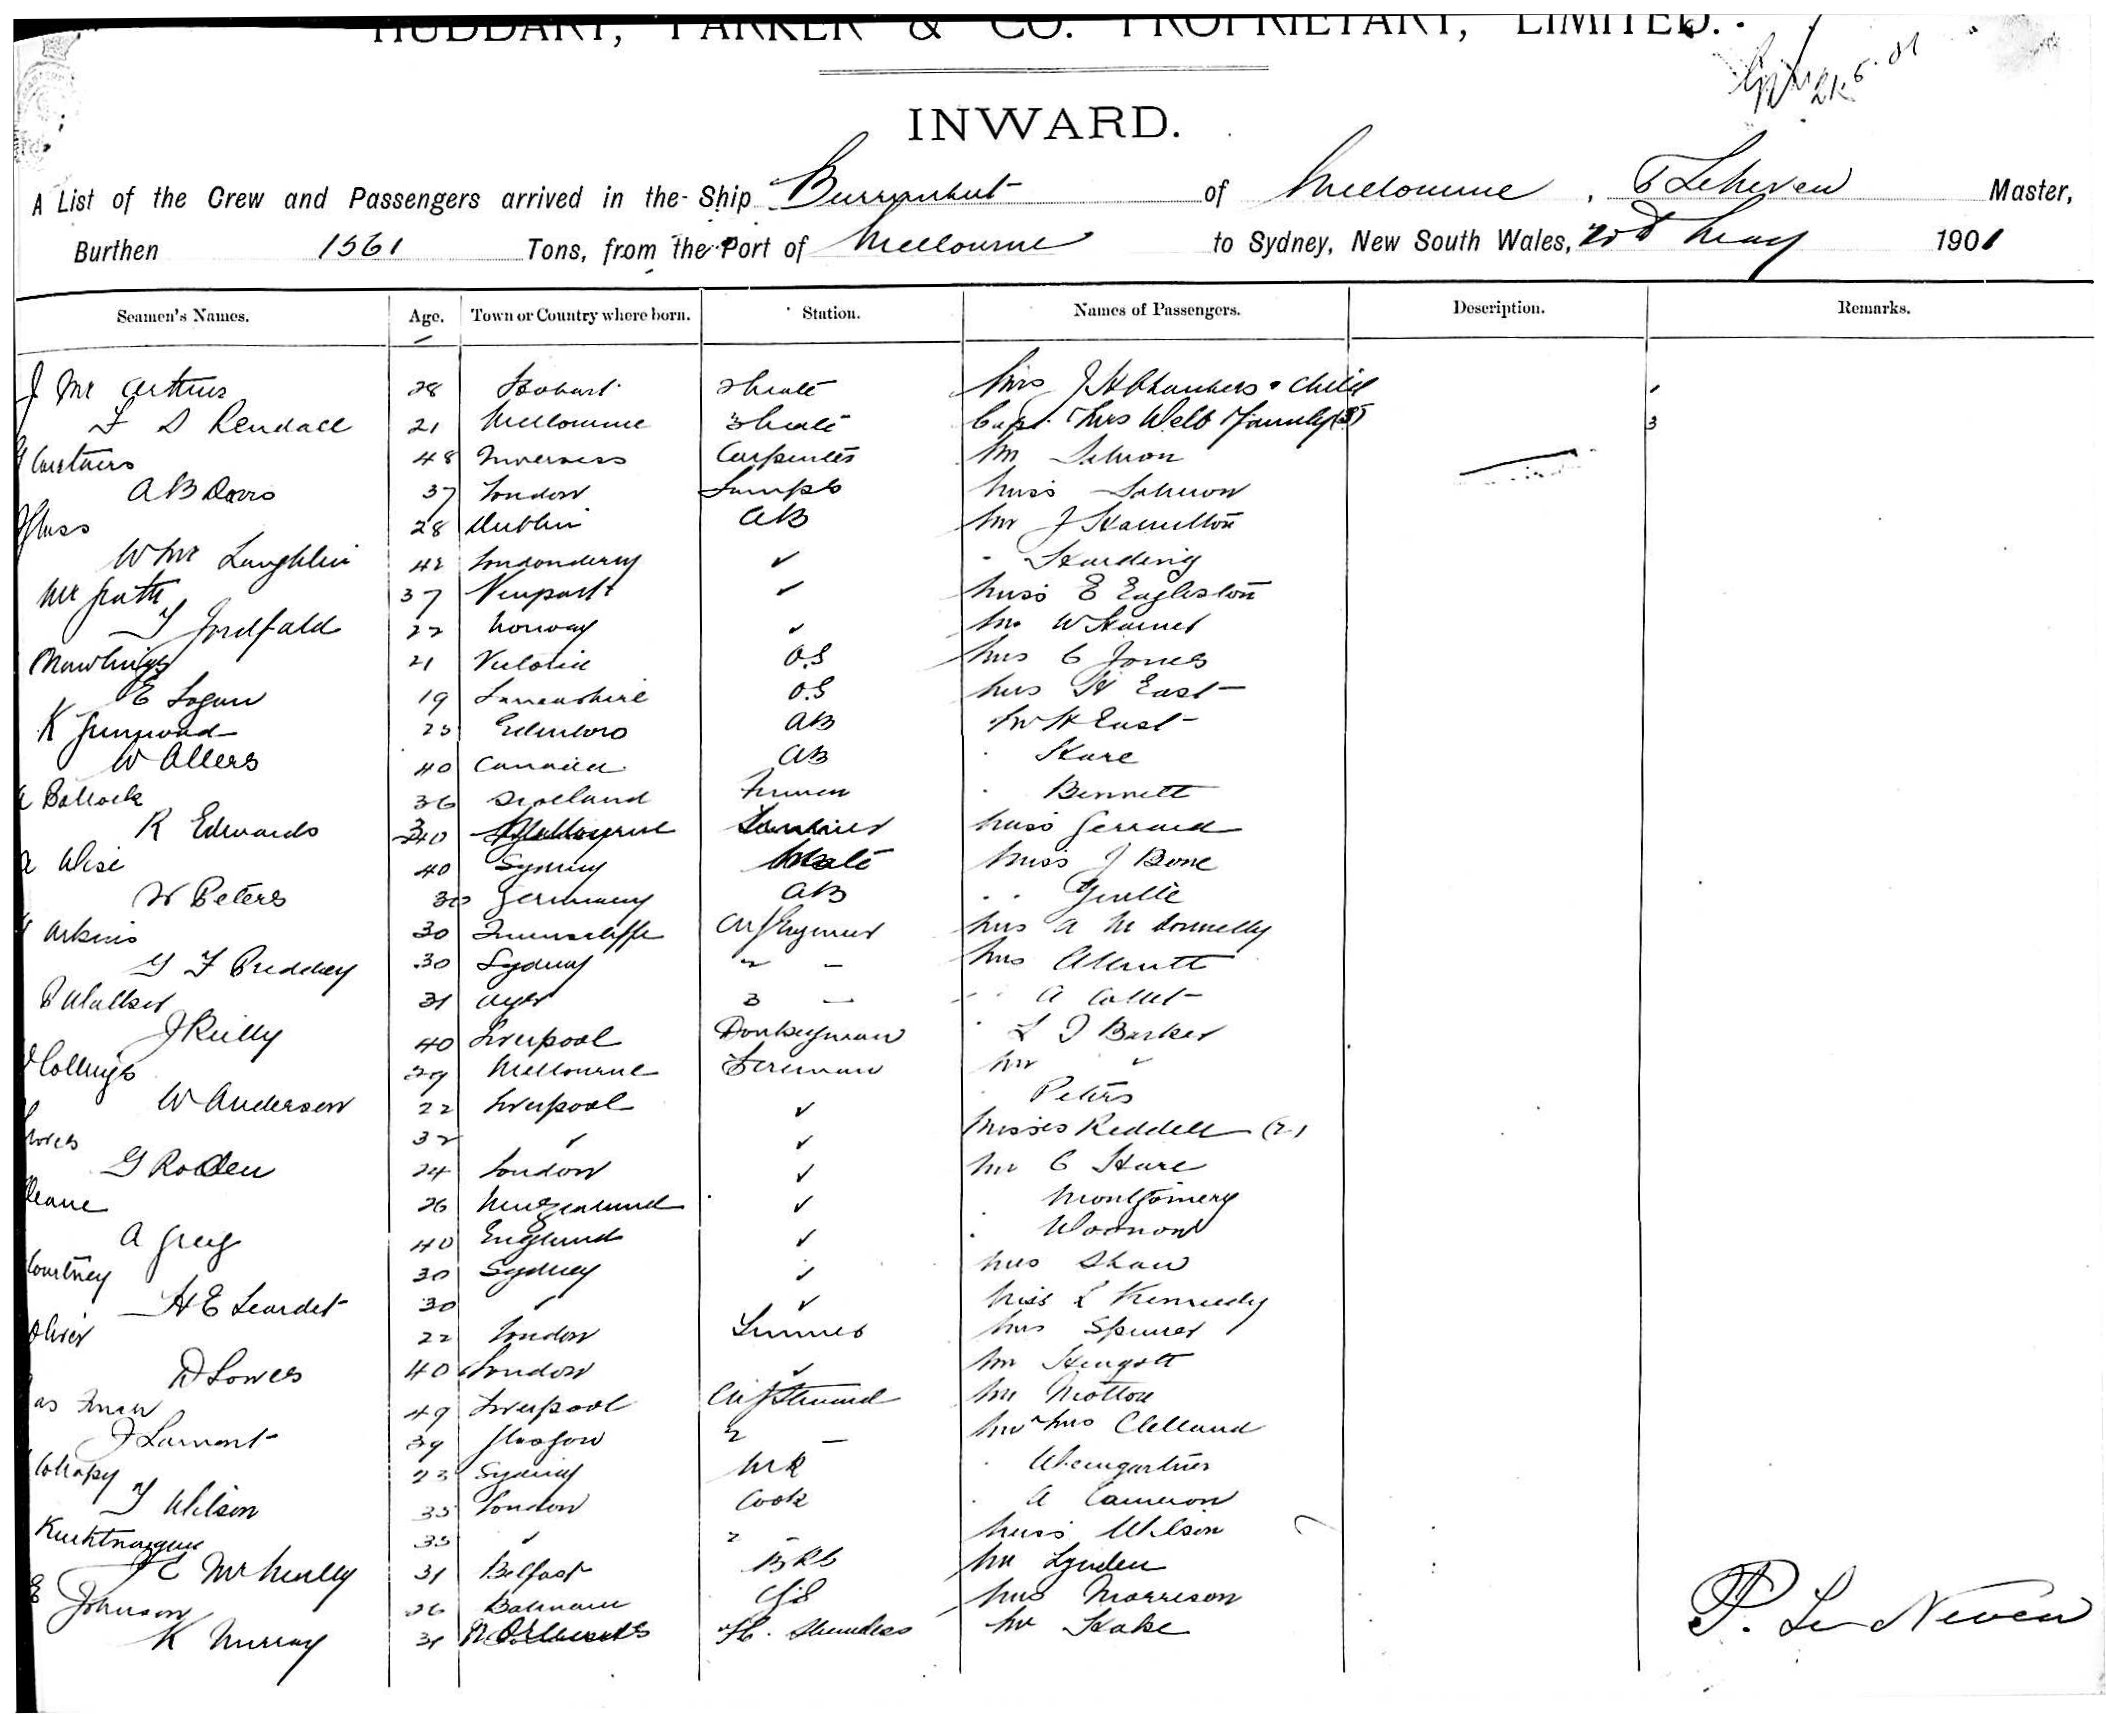 HUDDART, PARKER & CO. PROPRIETARY, LIMITED.
21.5.01
INWARD.
A List of the Crew and Passengers arrived in the Ship Burrumbeet of Melbourne, P LeNeveu Master,
Burthen 1561 Tons, from the Port of Melbourne to Sydney, New South Wales, May 1901
Seamen's Names. Age. Town or Country where born. Station. Names of Passengers. Description. Remarks.
J Mc Arthur 28 Hobart 2 Mate Mrs J H Chambers & child
F D Rendall 21 Melbourne 3 Mate Capt. Mrs Webb & family (3) 3
Carstairs 48 Inverness Carpenter Mr Salmon
A B Davis 37 London Lamps Miss Salmon
Glass 28 Dublin AB Mr J Hamilton
W Mc Laughlin 42 Londonderry ✓ " Harding
McGrath 37 Newport ✓ Miss E Eagleston
22 Norway ✓ Mr W Haines
Rawlings 21 Victoria O.S Mrs C Jones
E Logan 19 Lancashire O.S Mrs H East
K Grunwald 25 Edinboro AB Mr H East
W Allers 40 Canada AB " Hare
Bollock 36 Scotland " Bennett
R Edwards 40 Melbourne Miss Gerrard
Wise 40 Sydney Mate Miss J Bone
W Peters 30 Germany AB " "
Arkins 30 Queenscliffe Ch Engineer Mrs A Mc Donnelly
G F Priddey 30 Sydney 2 — Mrs Allnutt
P Walker 31 Ayr 3 — " A Collet
J Reilly 40 Liverpool Donkeyman " L J Barker
Collings 29 Melbourne Fireman Mr ✓
W Anderson 22 Liverpool ✓ " Peters
32 ✓ ✓ Misses Reddell (2)
G Roden 24 London ✓ Mr C Hare
Deane 26 New Zealand ✓ Montgomery
A Greig 40 England ✓ "
Courtney 30 Sydney ✓ Mrs Shaw
H E Leardet 30 ✓ ✓ Miss L Kennedy
Oliver 22 London Trimmer Mrs Spencer
D Lowes 40 London ✓ Mr
49 Liverpool Ch Steward Mr Motton
J Lamont 39 Glasgow 2 — Mr & Mrs Clelland
23 Sydney " Weingartner
T Wilson 35 London Cook " A Cameron
35 ✓ 2 — Miss Wilson
J C McNeilly 31 Belfast BRC Mr Lynden
E Johnson 26 Balmain Mrs Morrison
K Murray 31 St. Stewardess Mr Hake
P. Le Neveu